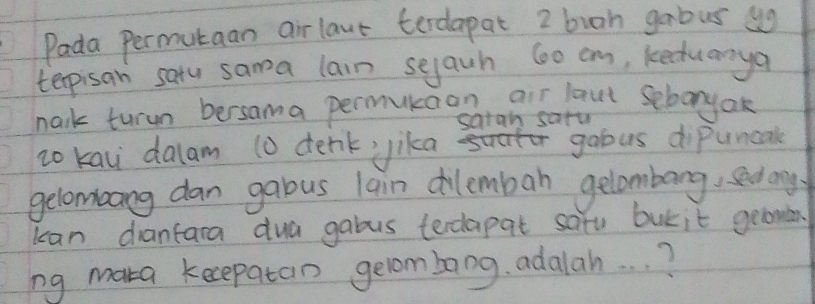 Pada Permukaan air laut terdapat 2 buah gabus yg
terpisah satu sama lain sejauh 60 cm, keduanya
naik turun bersama permukaan air laut sebanyak
20 kali dalam 10 detik, jika salah satu gabus dipuncak
gelombang dan gabus lain dilembah gelombang, sedang-
kan diantara dua gabus terdapat satu bukit gelomba-
ng maka kecepatan gelombang adalah ...?